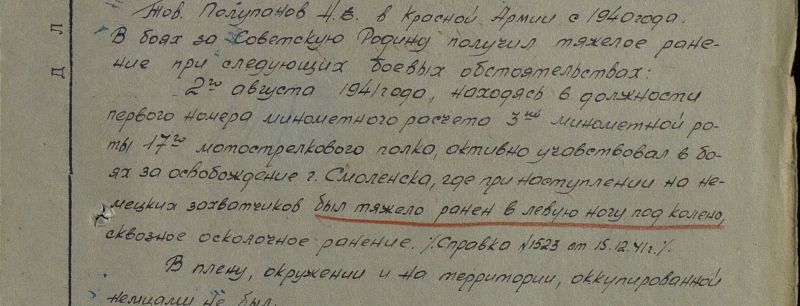 Тов. Полупанов Н.В. в Красной Армии с 1940 года.
В боях за Советскую Родину получил тяжелое ране-
ние при следующих боевых обстоятельствах:
2го августа 1941 года, находясь в должности
первого номера минометного расчета 3ей минометной ро-
ты 17го мотострелкового полка, активно учавствовал в бо-
ях за освобождение г. Смоленска, где при наступлении на не-
мецких захватчиков был тяжело ранен в левую ногу под колено,
сквозное осколочное ранение. /Справка №1523 от 15.12.41г./.
В плену, окружении и на территории, оккупированной
немцами не был.
Д Л